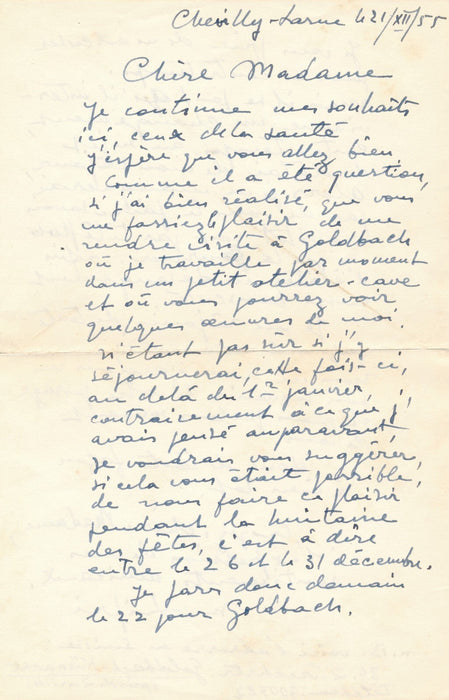 Chevilly-Larue le 21/XII/55
Chère Madame
Je continue mes souhaits
ici, ceux de la santé
J'espère que vous allez bien
Comme il a été question,
si j'ai bien réalisé, que vous
me fassiez le plaisir de me
rendre visite à Goldbach
où je travaille par moment
dans un petit atelier-cave
et où vous pourrez voir
quelques œuvres de moi.
n'étant pas sûr si j'y
séjournerai, cette fois-ci,
au delà du 1er janvier,
contrairement à ce que j'
avais pensé auparavant,
je voudrais vous suggérer,
si cela vous était possible,
de nous faire ce plaisir
pendant la huitaine
des fêtes, c'est à dire
entre le 26 et le 31 décembre.
Je pars donc demain
le 22 pour Goldbach.